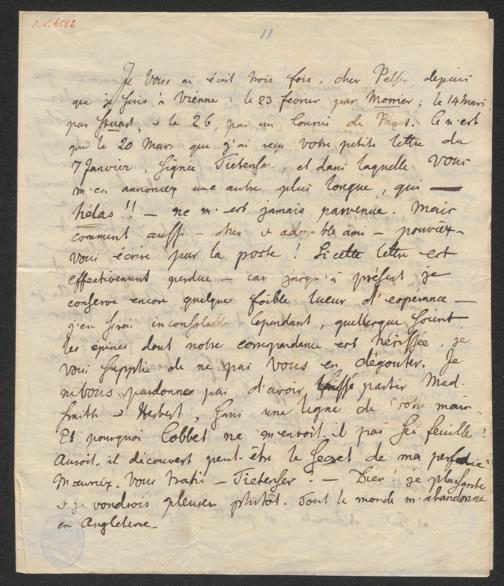 J.N. 4582
11
Je vous ai écrit trois fois, cher Pelsr depuis
que je suis à Vienne: le 23 fevrier par Monier; le 14 Mars
par Stuart, & le 26, par un Courier de Paget. Ce n'est
que le 20 Mars que j'ai reçu votre petite lettre du
7 Janvier, signée Tietenser, et dans laquelle vous
m'en annoncez une autre plus longue, qui —
hélas!! — ne m'est jamais parvenue. Mais
comment aussi — cher & adorable ami — pouviez-
vous écrire par la poste! Si cette lettre est
effectivement perdue — car jusqu'à présent je
conserve encore quelque foible lueur d'esperance —
j'en serai inconsolable. Cependant, quelleque soient
les épines dont notre correspondance est hérissée, je
vous supplie de ne pas vous en dégouter. Je
ne vous pardonne pas d'avoir laissé partir Mad.
Smith & Herbert, sans une ligne de votre main.
Et pourquoi Cobbet ne m'envoit-il pas ses feuilles?
Auroit-il découvert peut-être le secret de ma perfidie?
M'auriez-vous trahi — Tietenser? — Dieu! je plaisante
& je voudrois pleurer plutôt. Tout le monde m'abandonne
en Angleterre.